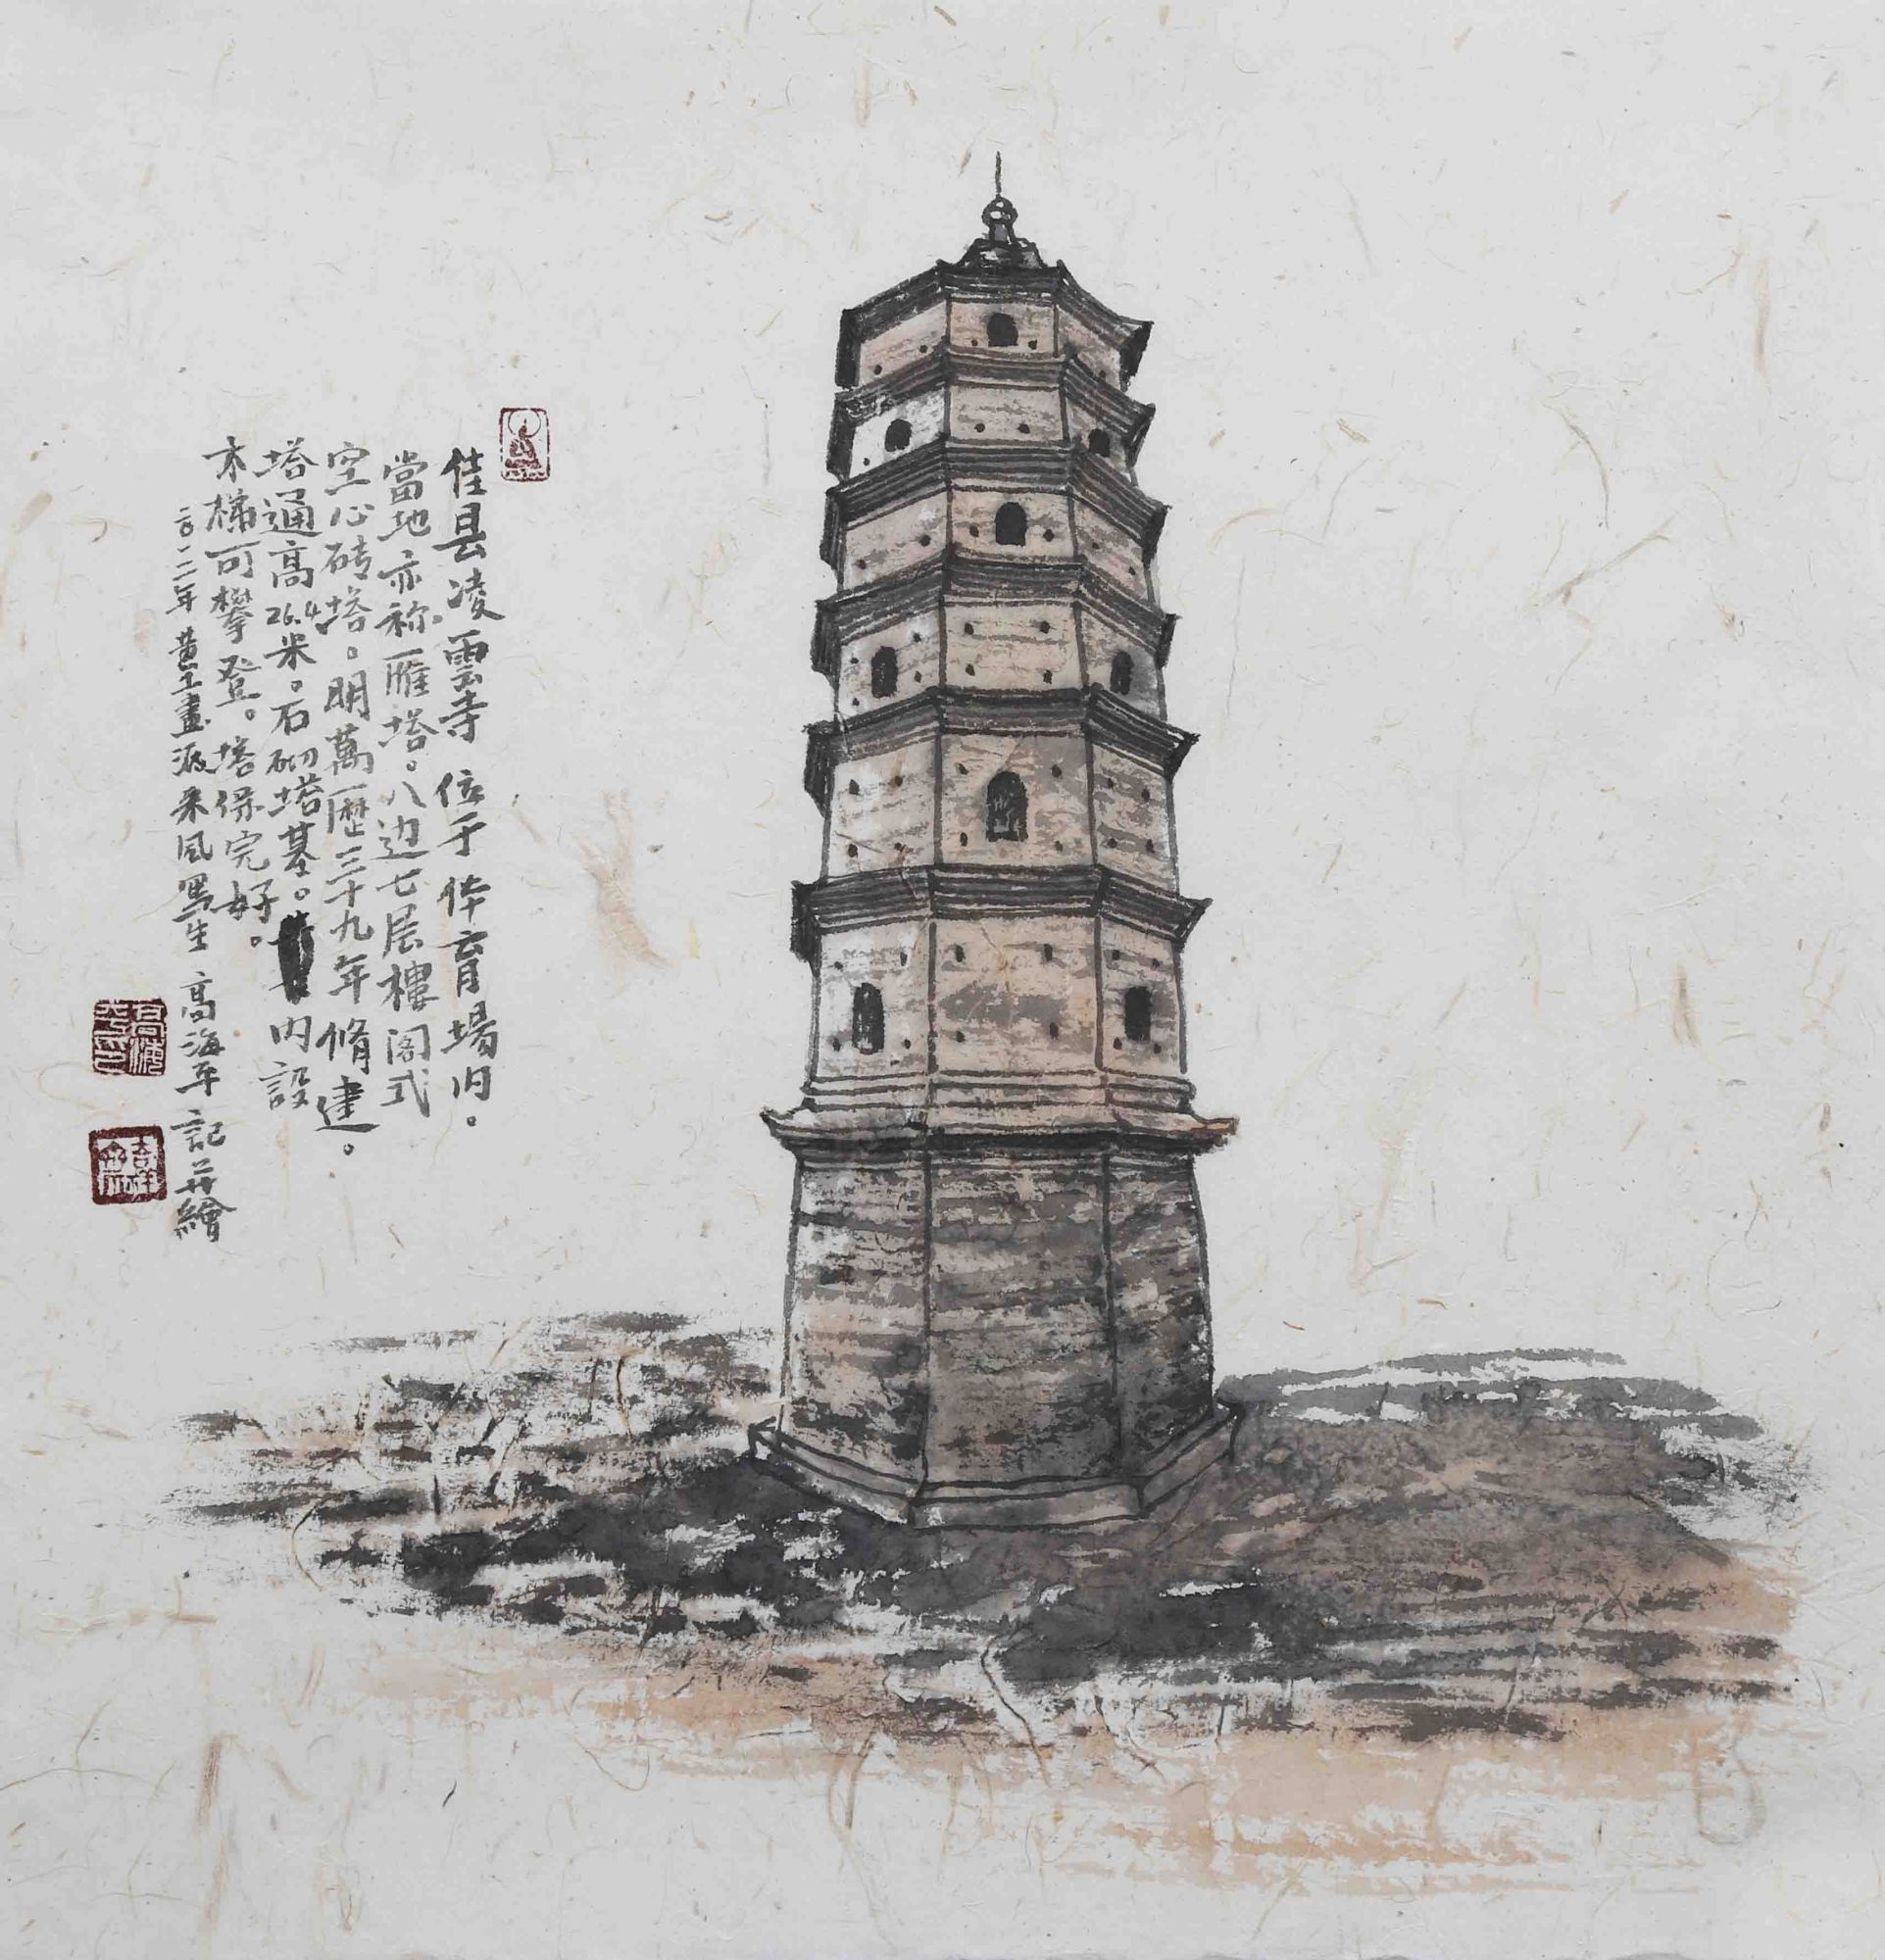 佳县凌雲寺 位于体育場内。
當地亦称雁塔。八边七层樓阁式
空心砖塔。明萬歷三十九年脩建。
塔通高26.4米。石砌塔基。内設
木梯可攀登。塔保完好。
二〇二二年 黄土畫派采风寫生 高海平 記并繪